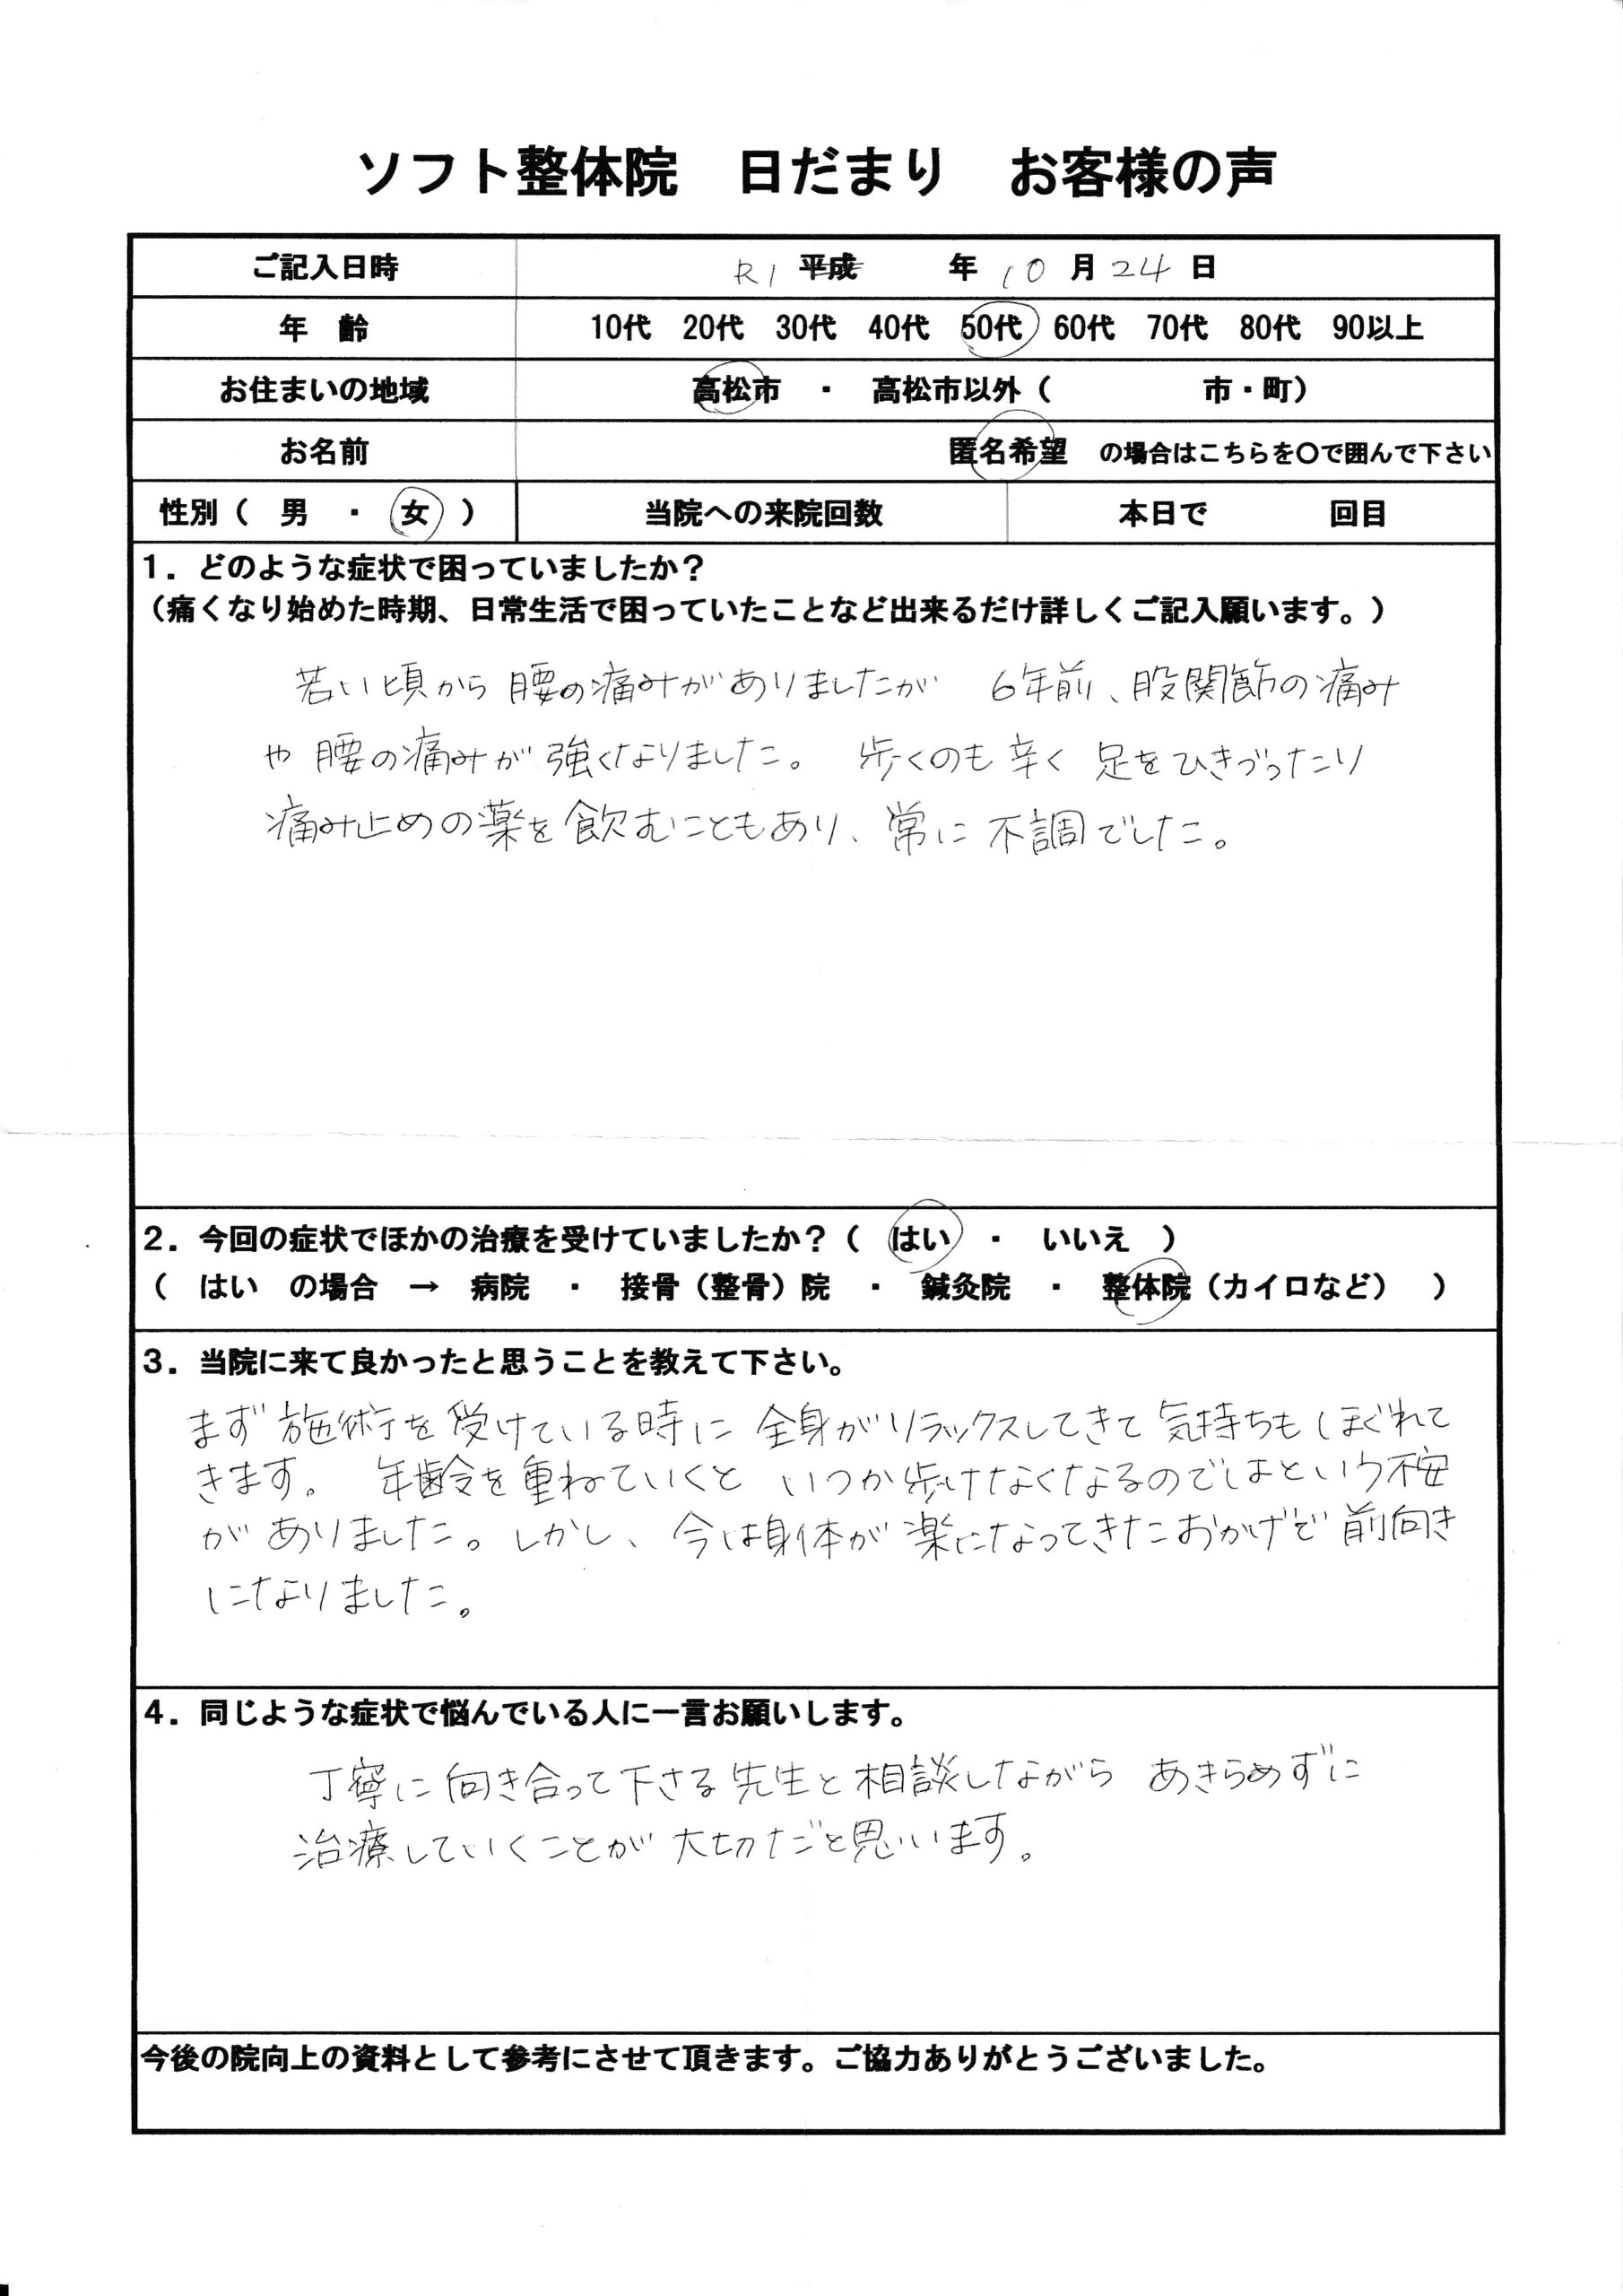 ソフト整体院　日だまり　お客様の声
ご記入日時　R1 平成　年 10 月 24 日
年　齢　10代　20代　30代　40代　50代　60代　70代　80代　90以上
お住まいの地域　高松市　・　高松市以外（　　　市・町）
お名前　匿名希望　の場合はこちらを〇で囲んで下さい
性別（　男　・　女　）　当院への来院回数　本日で　　回目
1．どのような症状で困っていましたか？
（痛くなり始めた時期、日常生活で困っていたことなど出来るだけ詳しくご記入願います。）
若い頃から腰の痛みがありましたが　6年前、股関節の痛み
や腰の痛みが強くなりました。　歩くのも辛く　足をひきづったり
痛み止めの薬を飲むこともあり、常に不調でした。
2．今回の症状でほかの治療を受けていましたか？（　はい　・　いいえ　）
（　はい　の場合　→　病院　・　接骨（整骨）院　・　鍼灸院　・　整体院（カイロなど）　）
3．当院に来て良かったと思うことを教えて下さい。
まず施術を受けている時に　全身がリラックスしてきて気持ちもほぐれて
きます。　年齢を重ねていくと　いつか歩けなくなるのではという不安
がありました。しかし、今は身体が楽になってきたおかげで前向き
になりました。
4．同じような症状で悩んでいる人に一言お願いします。
丁寧に向き合って下さる先生と相談しながら　あきらめずに
治療していくことが大切だと思います。
今後の院向上の資料として参考にさせて頂きます。ご協力ありがとうございました。